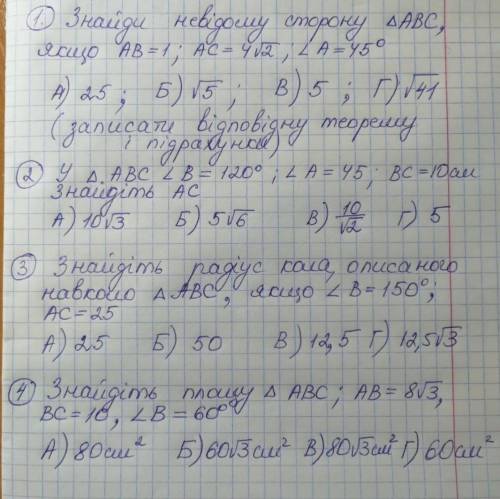 1. Знайди невідому сторону △ABC,
якщо AB=1; AC=4√2; ∠A=45°
А) 25; Б) √5; В) 5; Г) √41
(записати відповідну теорему
і підрахунки)
2 У △ABC ∠B=120°; ∠A=45; BC=10см
Знайдіть AC
А) 10√3 Б) 5√6 В) 10/√2 Г) 5
3 Знайдіть радіус кола, описаного
навколо △ABC, якщо ∠B=150°;
AC=25
А) 25 Б) 50 В) 12,5 Г) 12,5√3
4 Знайдіть площу △ABC; AB=8√3,
BC=10, ∠B=60°
А) 80см² Б) 60√3см² В) 80√3см² Г) 60см²